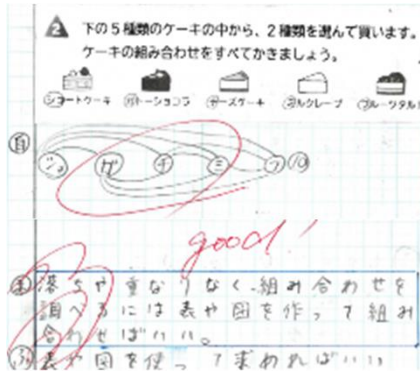 2 下の5種類のケーキの中から、2種類を選んで買います。
ケーキの組み合わせをすべてかきましょう。
ショートケーキ ガトーショコラ チーズケーキ ミルクレープ フルーツタルト
自
ショ ガ チ ミ フ 10
good!
ま 落ちや重なりなく、組み合わせを
調べるには表や図を作って組み
合わせばいい。
ふ 表や図を使って求めればいい